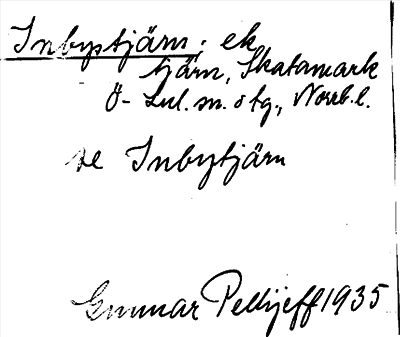 Inbystjärn, ek
tjärn, Skatamark
Ö- Lul. sn. o tg., Norrb. l.
se Inbytjärn
Gunnar Pellijeff 1935